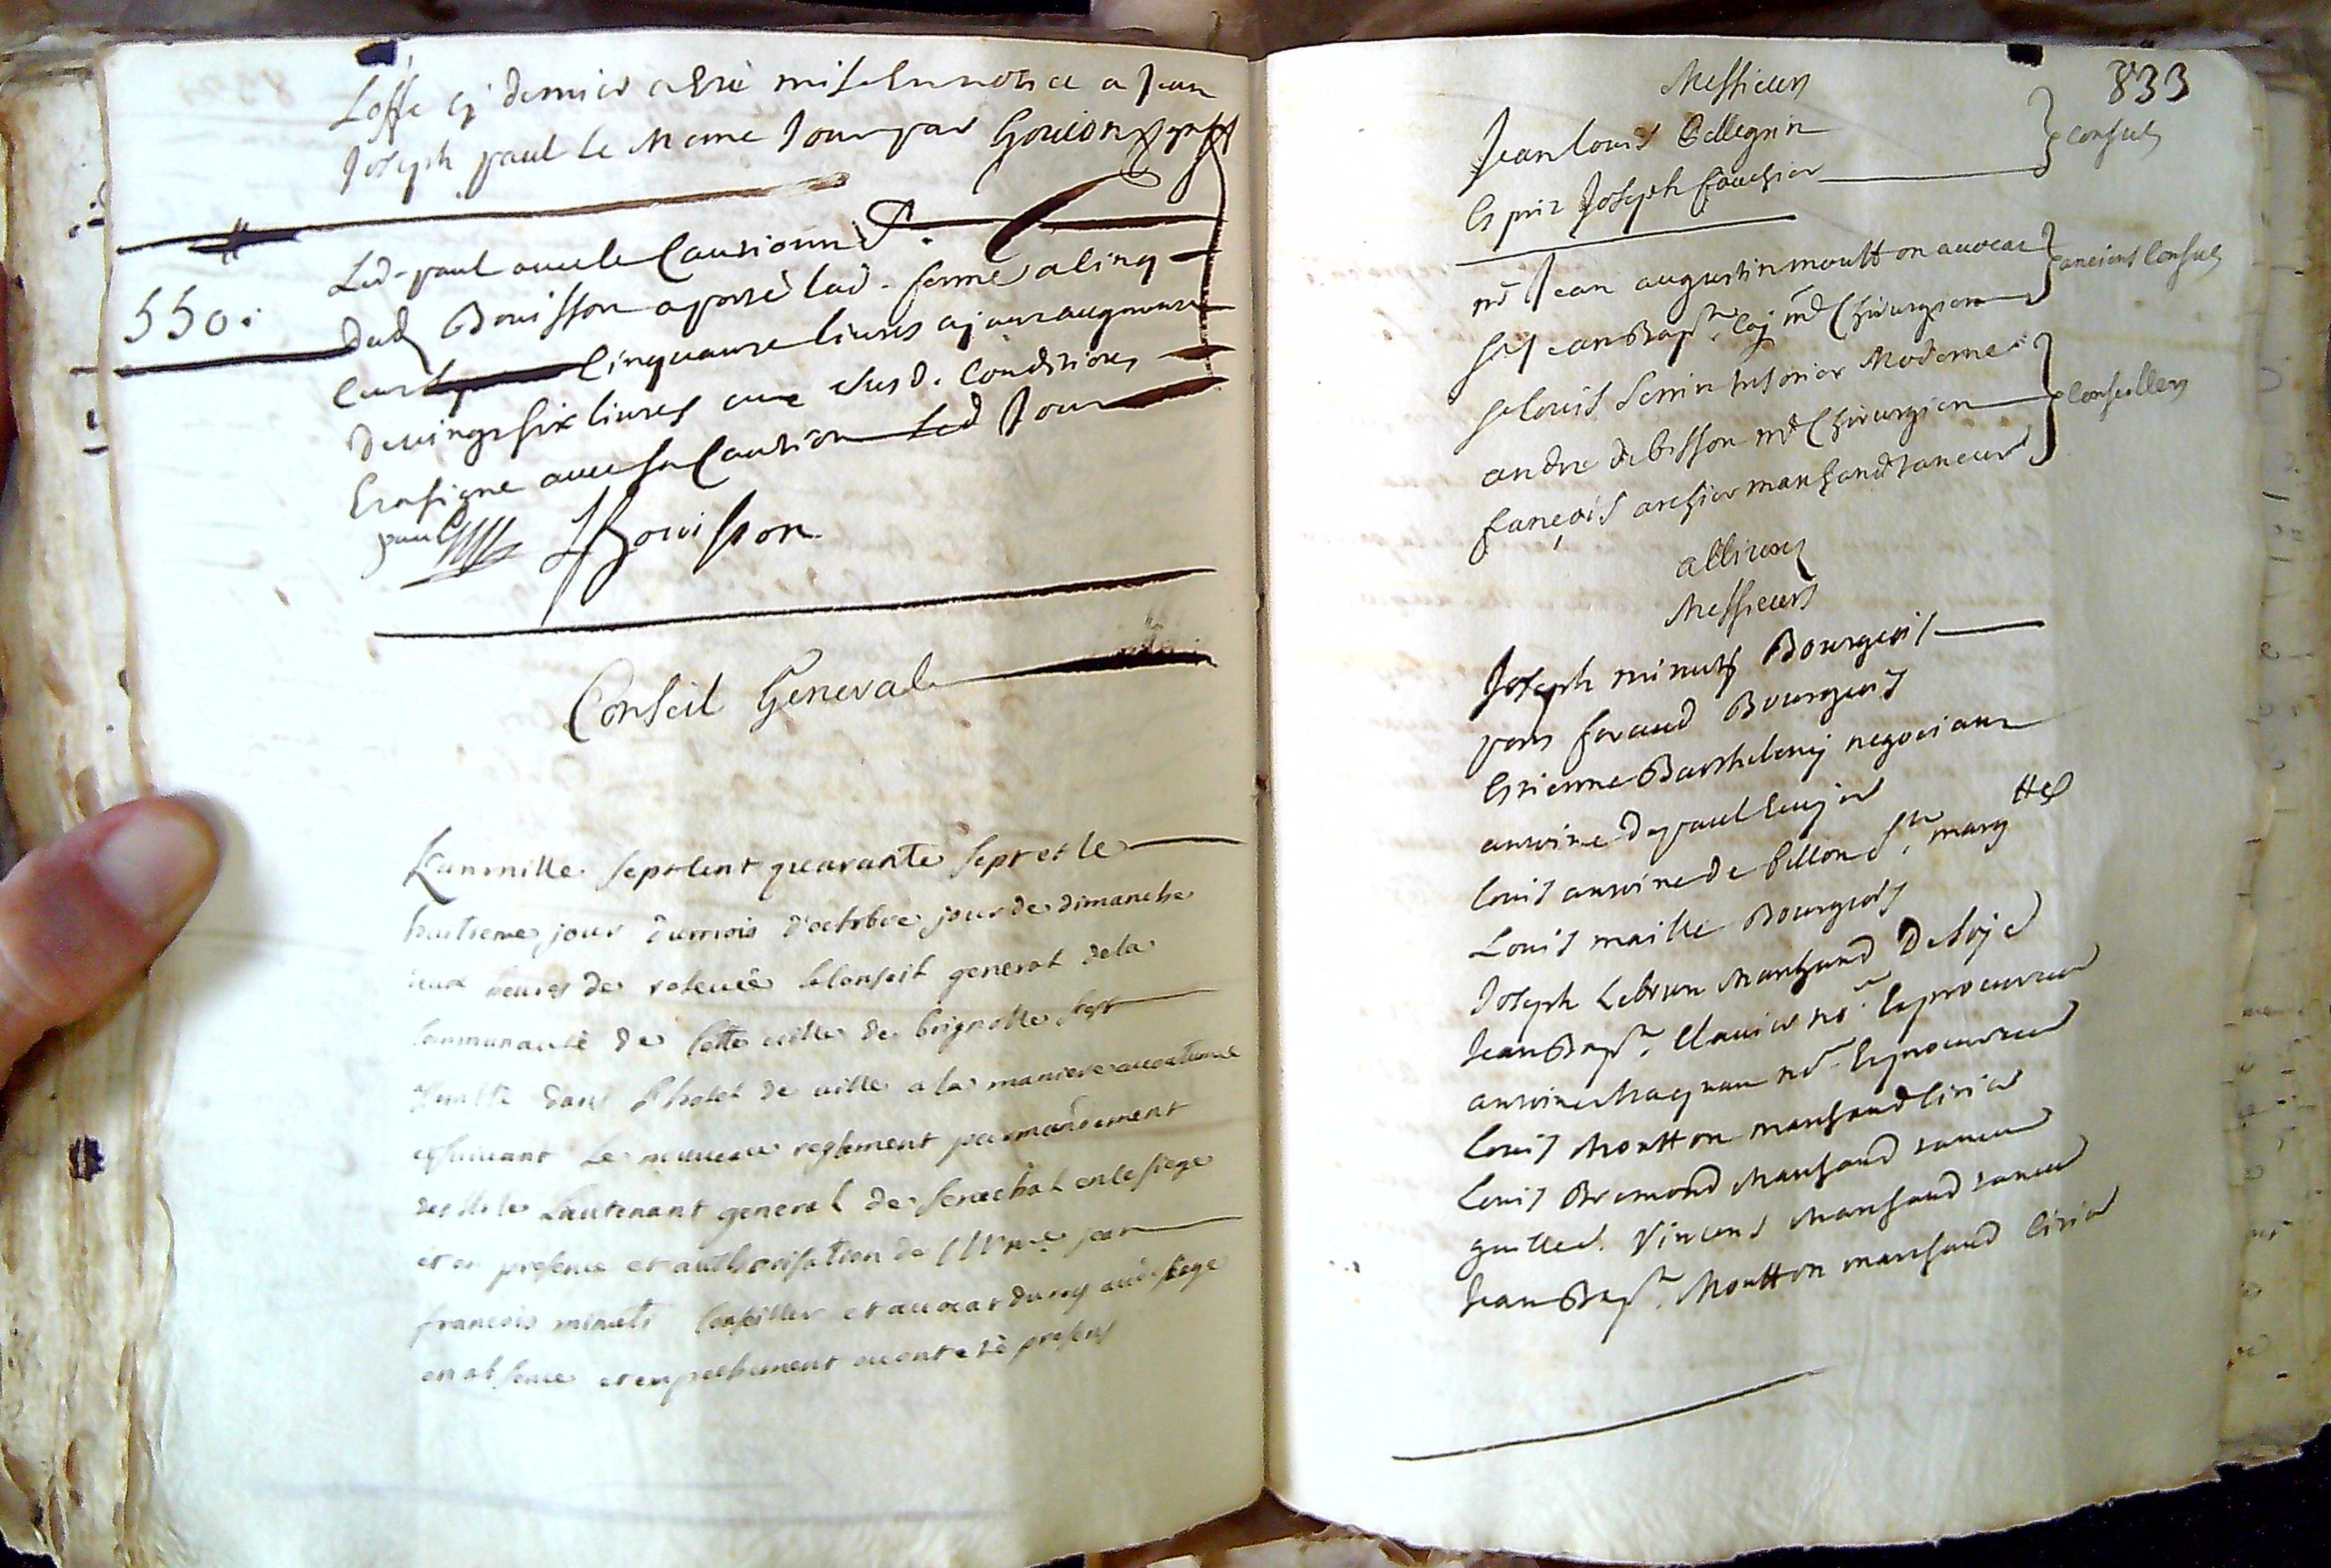 Loffe cy dernier a esté mise en notice a Jean
Joseph paul le meme Jour par Gouion greff
Led. paul avec le Cautionnt.
550.
dud Bouisson a porté lad. ferme a cinq
cent cinquante livres ayant augmenté
de vingt six livres aux susd. Conditions
Et a signé avec sa Caution led Jour
paul JBouisson
Conseil General
L'an mille sept cent quarante sept et le
huitieme jour du mois d'octobre jour de dimanche
deux heures de relevée le Conseil general de la
Communauté de Cette ville de brignolle s'est
assemblé dans l'hotel de ville a la maniere accoutumée
et suivant le nouveau reglement par mandement
de Mr le Lieutenant general de senechal en le siege
et en presence et authorisation de Me jean
francois minuti Conseiller et avocat du roy aud. siege
en absence et empechement ou ont eté presens
833
Messieurs
Jean louis Pellegrin
Esprit Joseph fauchier
Consuls
me Jean augustin moutton avocat
Sr Jean Bapte. Coj me Chirurgien
anciens Consuls
Sr louis Serrin tresorier Moderne
andré debisson me Chirurgien
françois archier marchand taneur
Conseillers
allivrez
Messieurs
Joseph minuty Bourgeois
pons feraud Bourgeois
Estienne Barthelemy negotiant
antoine de paul Ecuyer
louis antoine de bellon Ste. margtte
Louis maille Bourgeois
Joseph Lebrun Marchand De soye
Jean Bapte. Clavier nore. Et procureur
antoine Magnan nore Et procureur
louis Moutton marchand Cirier
louis Bremond Marchand taneur
guilled. Vincens Marchand taneur
Jean Bapte. Moutton marchand Cirier